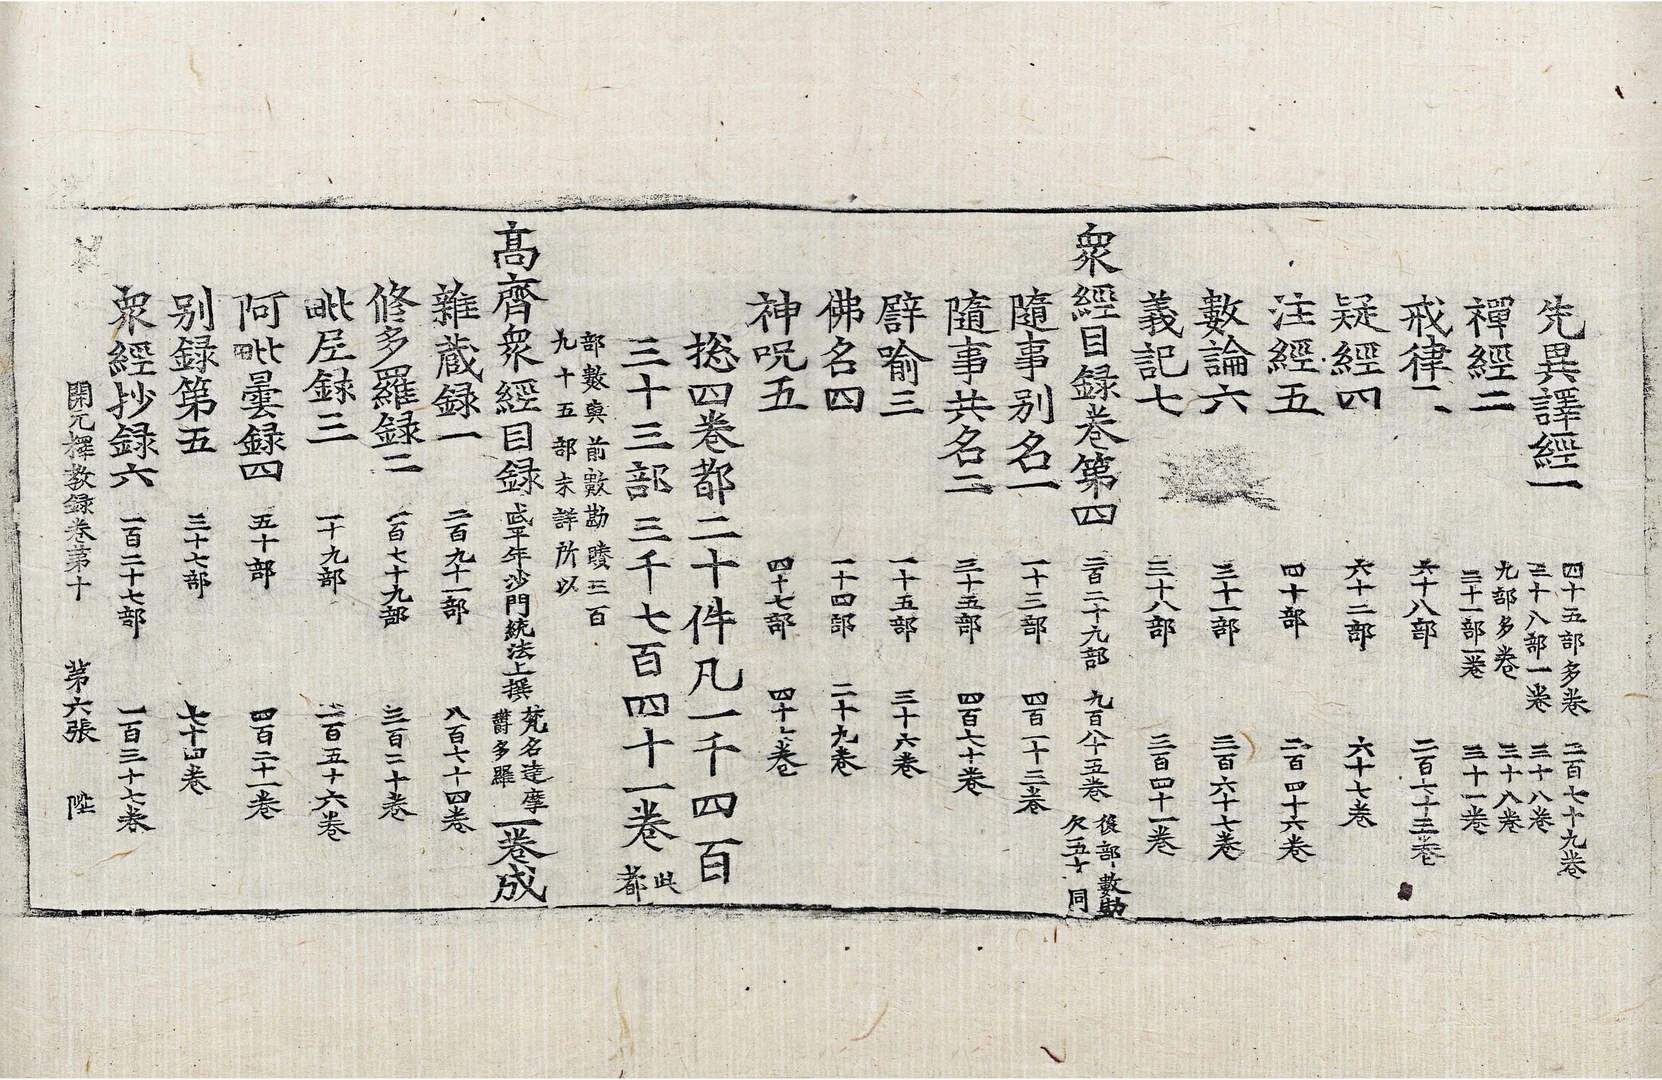 先異譯經一 四十五部多卷 二百七十九卷 三十八部一卷 三十八卷
禪經二 九部多卷 三十八卷 三十一部一卷 三十一卷
戒律三 六十八部 二百七十三卷
疑經四 六十二部 六十七卷
注經五 四十部 二百四十六卷
數論六 三十一部 三百六十七卷
義記七 三十八部 三百四十一卷
衆經目録卷第四 三百二十九部 九百八十五卷 後部數勘欠五十同
隨事別名一 一十三部 四百一十三卷
隨事共名二 三十五部 四百七十卷
譬喻三 一十五部 三十六卷
佛名四 一十四部 二十九卷
神呪五 四十七部 四十七卷
捴四卷都二十件凡一千四百
三十三部三千七百四十一卷 此都
部數與前數勘賸三百
九十五部未詳所以
髙齊衆經目録 武平年沙門統法上撰 梵名達摩欝多羅 一卷成
雜蔵録一 二百九十一部 八百七十四卷
修多羅録二 一百七十九部 三百三十卷
毗尼録三 一十九部 二百五十六卷
阿毗曇録四 五十部 四百二十一卷
别録第五 三十七部 七十四卷
衆經抄録六 一百二十七部 一百三十七卷
開元釋教録卷第十 第六張 陞